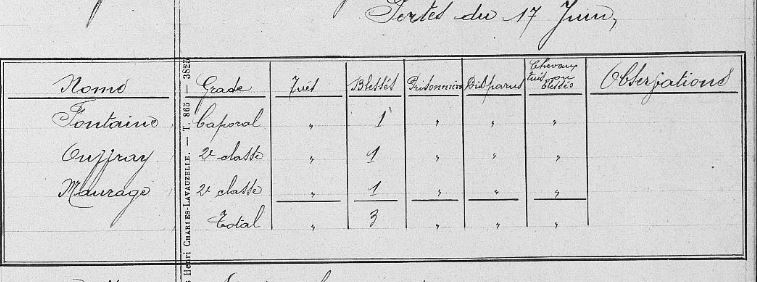 Pertes du 17 Juin,
Noms Grade Tués Blessés Prisonniers Disparus Chevaux tués ou blessés Observations
Fontaine Caporal " 1 " " "
2e classe " 1 " " "
Maurage 2e classe " 1 " " "
Total " 3 " " "
Henri CHARLES-LAVAUZELLE. — T. 865 — 3825